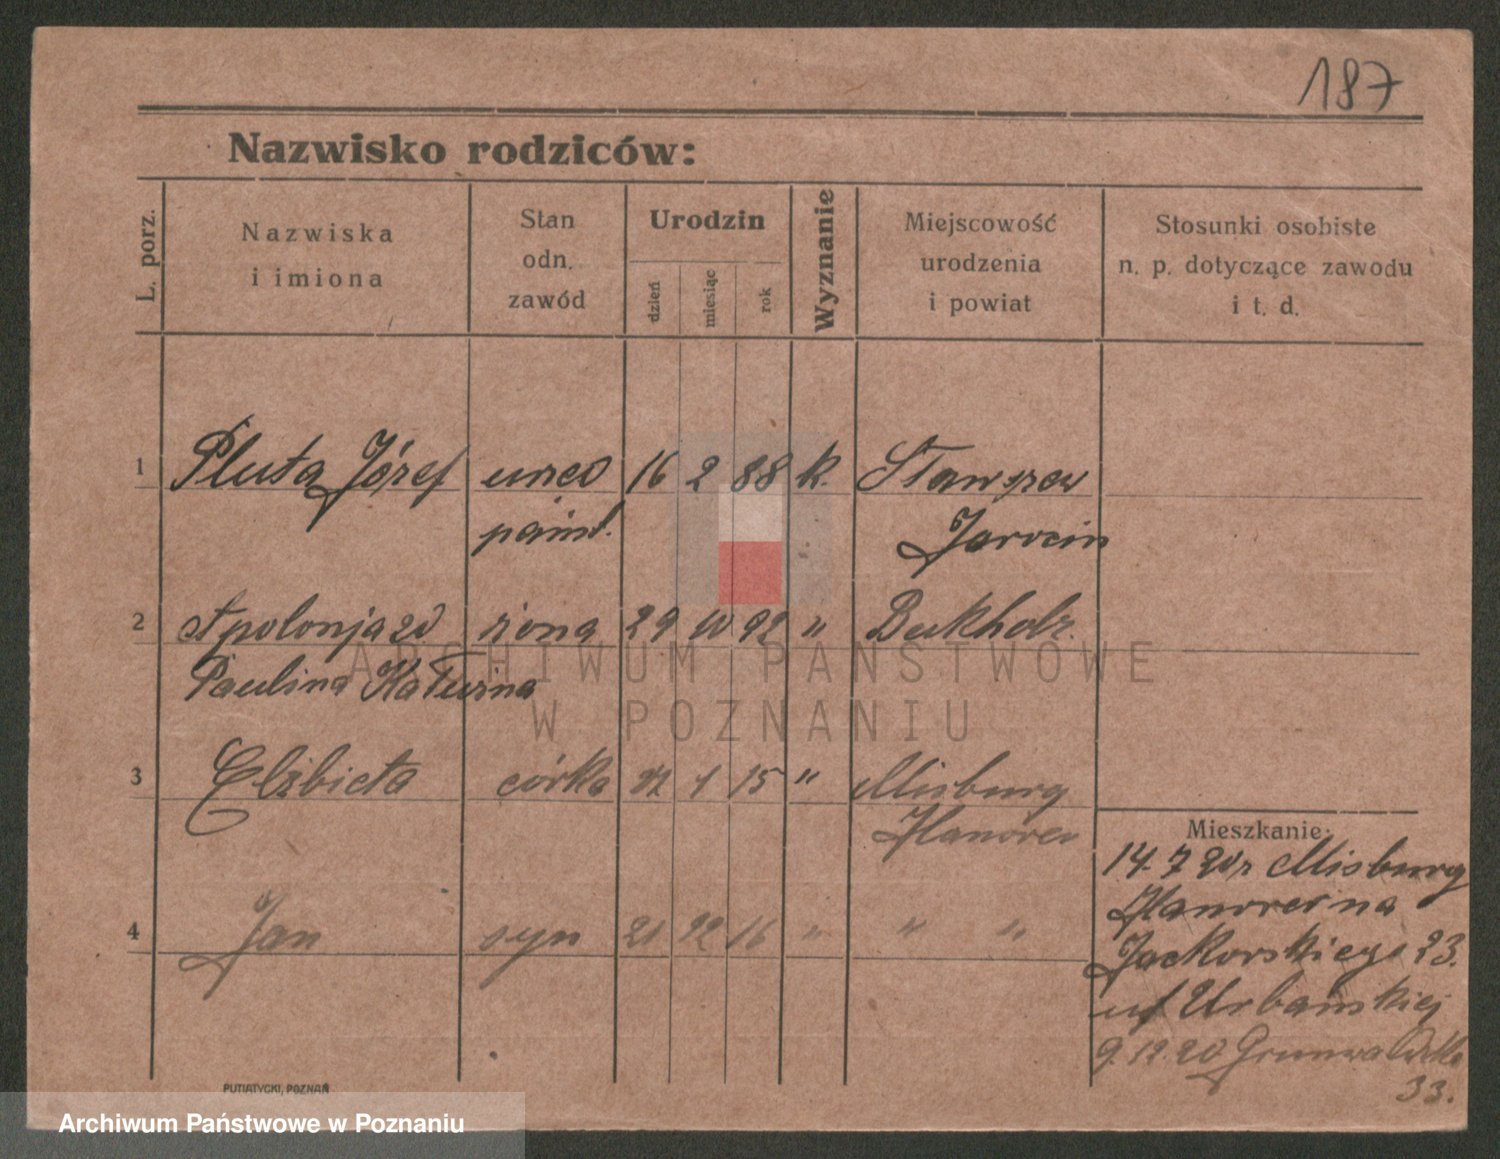 187
Nazwisko rodziców:
L. porz.
Nazwiska
i imiona
Stan
odn.
zawód
Urodzin
dzień
miesiąc
rok
Wyznanie
Miejscowość
urodzenia
i powiat
Stosunki osobiste
n. p. dotyczące zawodu
i t. d.
1 Pluta Józef 16 2 88 k.
Jarocin
2 Apolonja żona 29 10 92 "
Paulina
3 Elżbieta córka 1 15 " Misburg
Hanower
4 Jan syn 21 12 16 " " "
Mieszkanie:
14.7 20 r Misburg
Hanower na
Jackowskiego 23.
uf Urbańskiej
9.12.20 Grunwaldzka
33.
ARCHIWUM PAŃSTWOWE
W POZNANIU
PUTIATYCKI, POZNAŃ
Archiwum Państwowe w Poznaniu